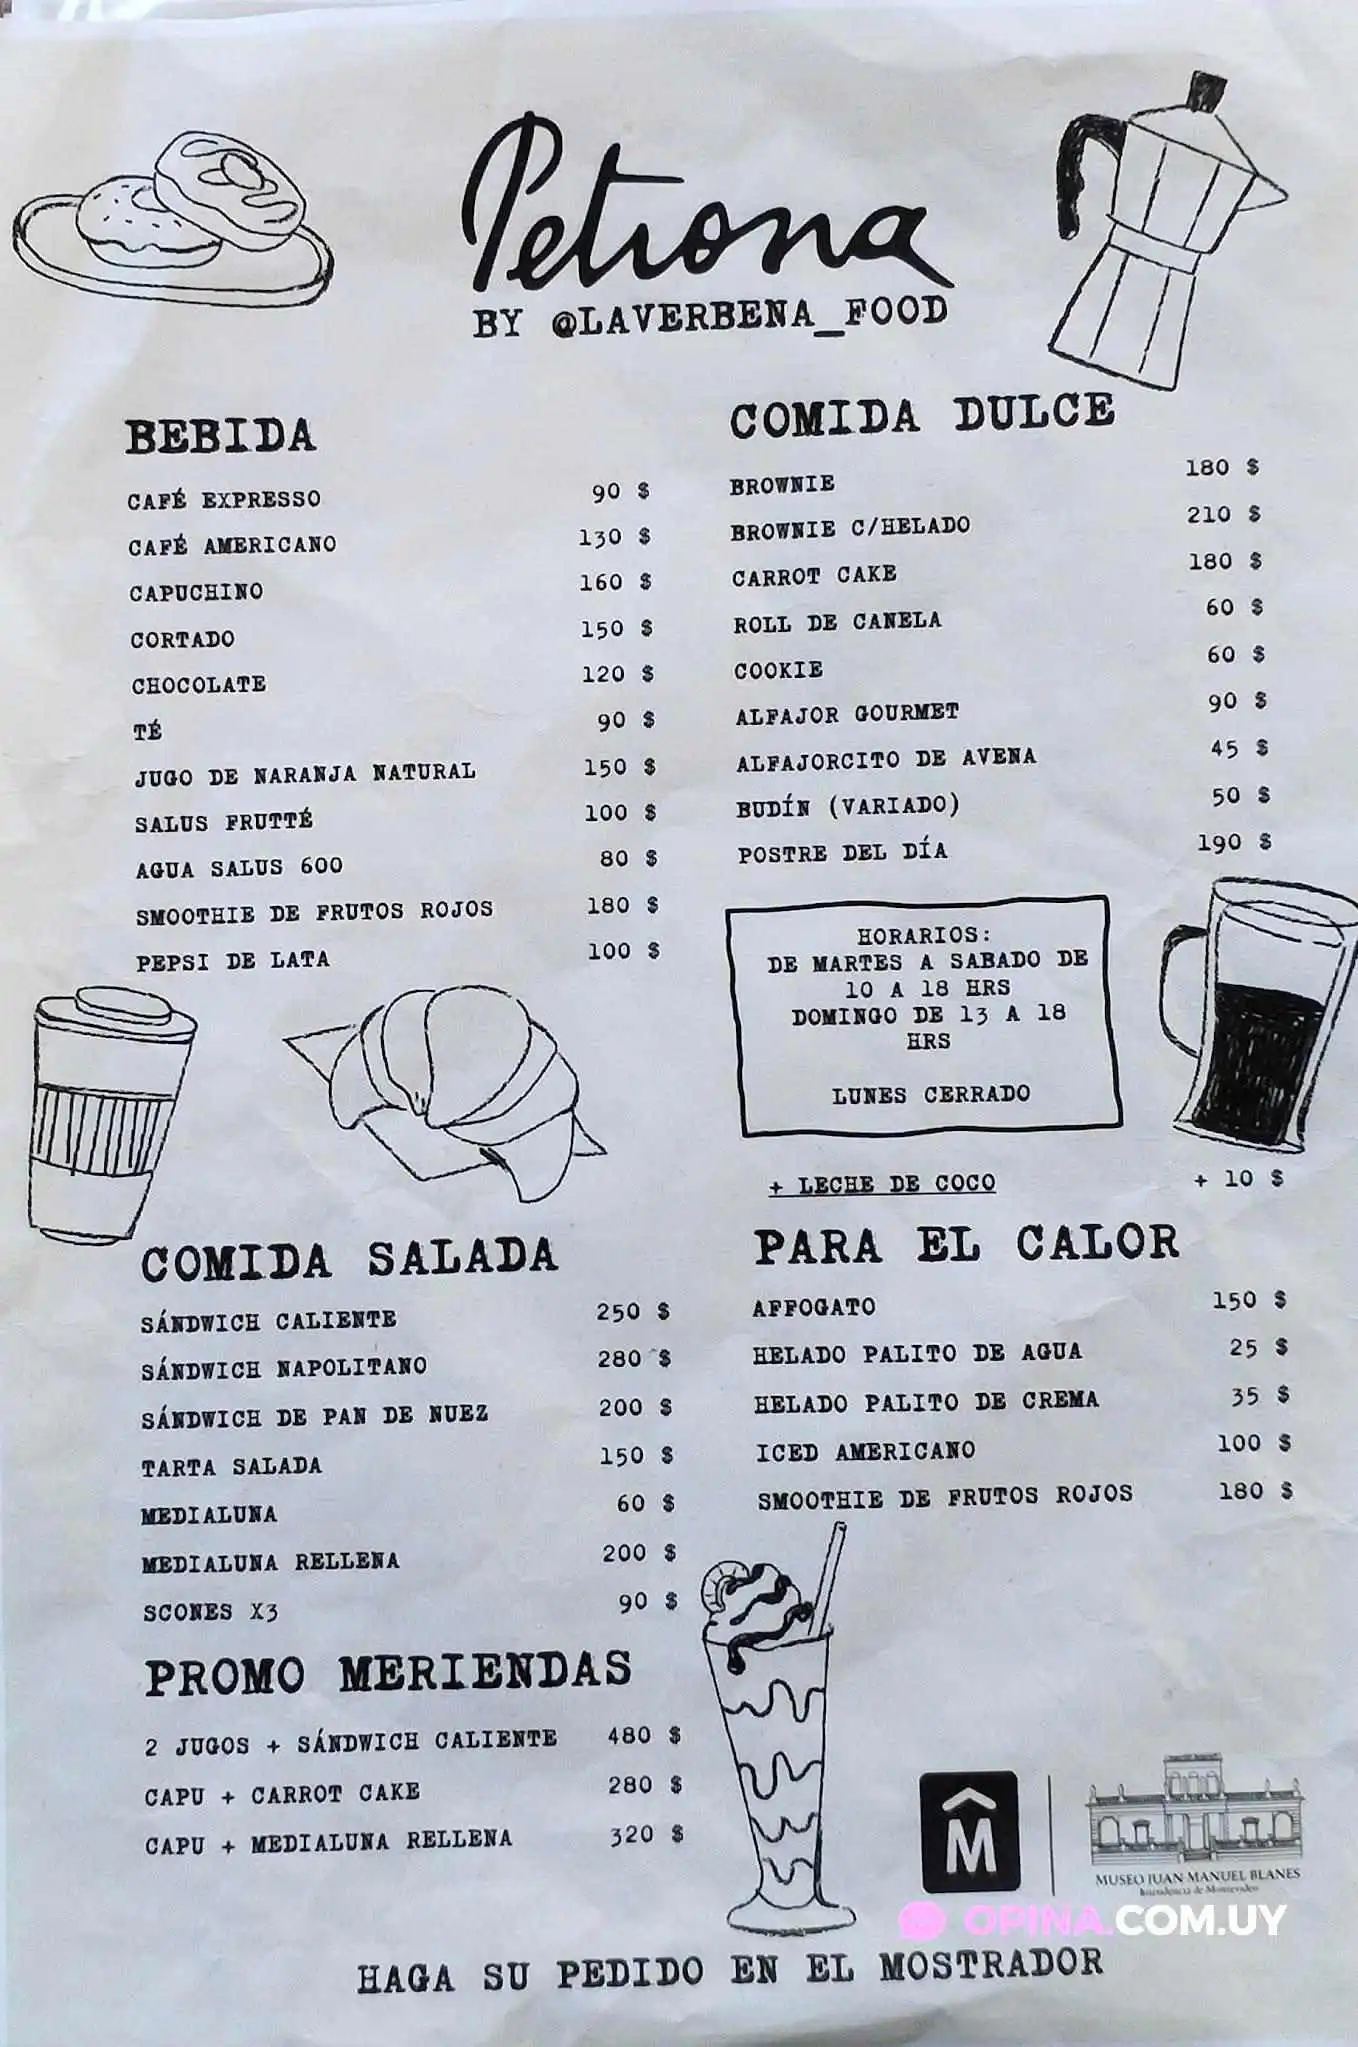 Petrona
BY @LAVERBENA_FOOD
BEBIDA
CAFÉ EXPRESSO 90 $
CAFÉ AMERICANO 130 $
CAPUCHINO 160 $
CORTADO 150 $
CHOCOLATE 120 $
TÉ 90 $
JUGO DE NARANJA NATURAL 150 $
SALUS FRUTTÉ 100 $
AGUA SALUS 600 80 $
SMOOTHIE DE FRUTOS ROJOS 180 $
PEPSI DE LATA 100 $
COMIDA DULCE
BROWNIE 180 $
BROWNIE C/HELADO 210 $
CARROT CAKE 180 $
ROLL DE CANELA 60 $
COOKIE 60 $
ALFAJOR GOURMET 90 $
ALFAJORCITO DE AVENA 45 $
BUDÍN (VARIADO) 50 $
POSTRE DEL DÍA 190 $
HORARIOS:
DE MARTES A SABADO DE
10 A 18 HRS
DOMINGO DE 13 A 18
HRS
LUNES CERRADO
+ LECHE DE COCO + 10 $
COMIDA SALADA
SÁNDWICH CALIENTE 250 $
SÁNDWICH NAPOLITANO 280 $
SÁNDWICH DE PAN DE NUEZ 200 $
TARTA SALADA 150 $
MEDIALUNA 60 $
MEDIALUNA RELLENA 200 $
SCONES X3 90 $
PARA EL CALOR
AFFOGATO 150 $
HELADO PALITO DE AGUA 25 $
HELADO PALITO DE CREMA 35 $
ICED AMERICANO 100 $
SMOOTHIE DE FRUTOS ROJOS 180 $
PROMO MERIENDAS
2 JUGOS + SÁNDWICH CALIENTE 480 $
CAPU + CARROT CAKE 280 $
CAPU + MEDIALUNA RELLENA 320 $
M
MUSEO JUAN MANUEL BLANES
Intendencia de Montevideo
OPINA.COM.UY
HAGA SU PEDIDO EN EL MOSTRADOR